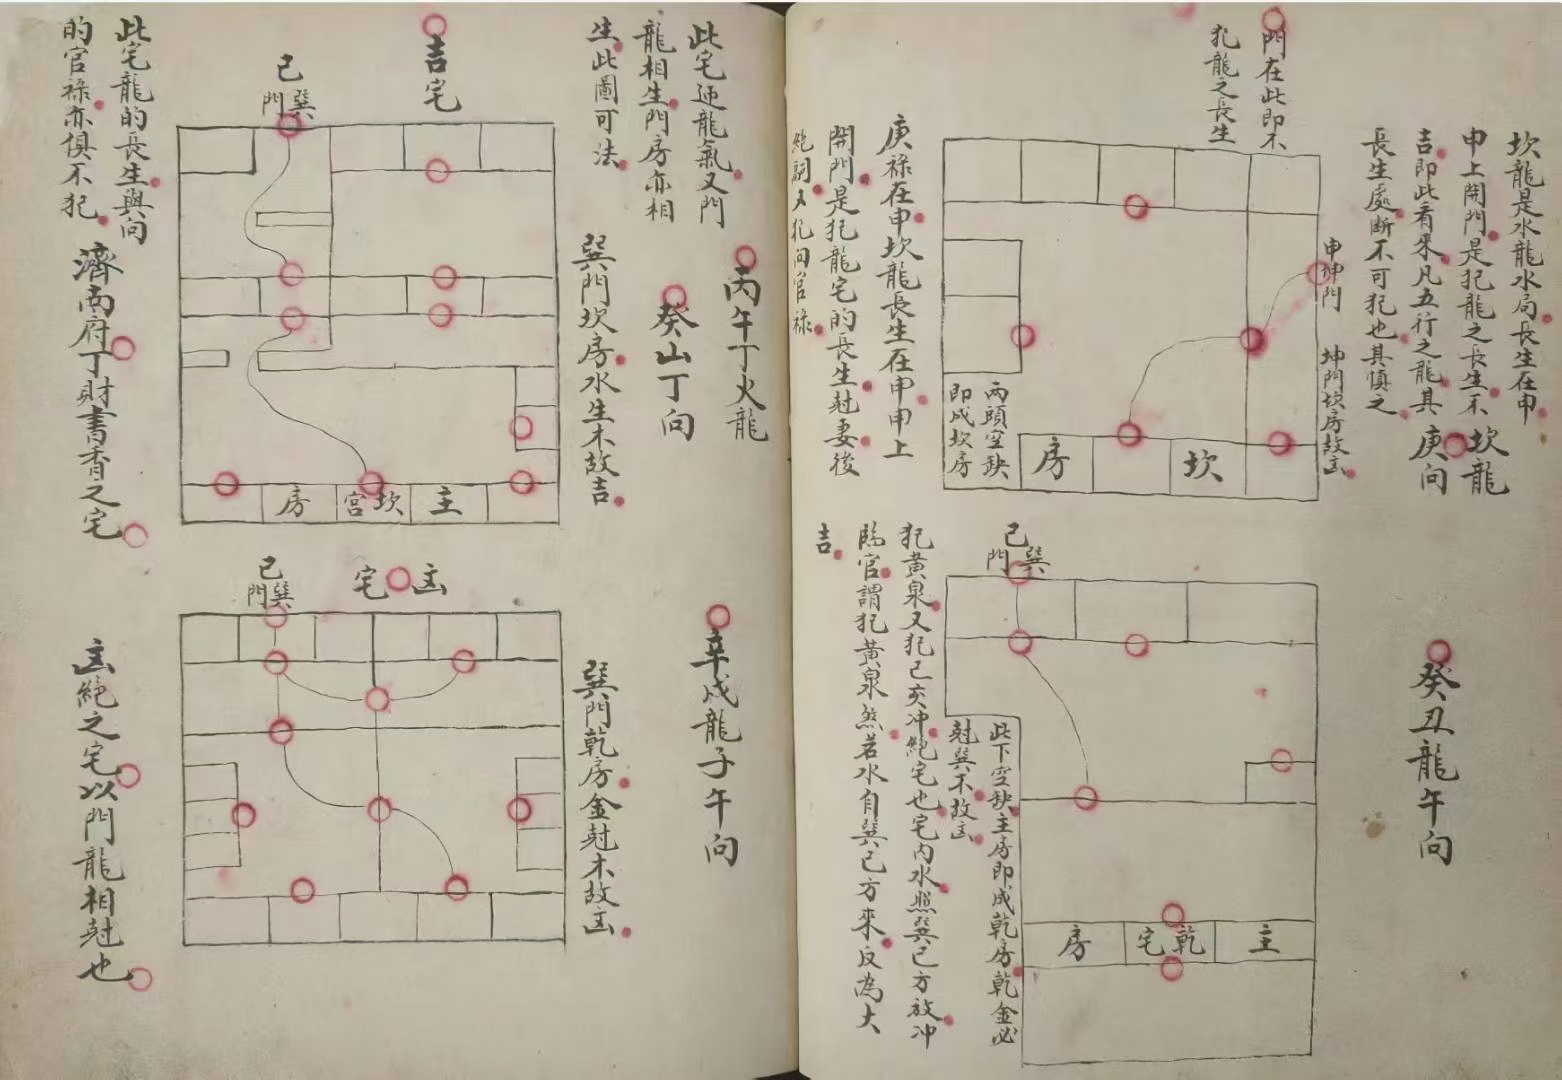 坎龍是水龍水局長生在申
申上開門是犯龍之長生不
吉即此看來凡五行之龍其
長生處斷不可犯也其慎之
坎龍
庚向
門在此即不
犯龍之長生
申坤門
坤門坎房故凶
庚祿在申坎龍長生在申申上
開門是犯龍宅的長生尅妻後
絶嗣又犯向官祿
兩頭空缺
即成坎房
坎
房
癸丑龍午向
巳
巽門
此下空缺主房即成乾房乾金必
尅巽木故凶
主
乾宅
房
犯黃泉又犯巳亥冲絶宅也宅内水照巽巳方放冲
臨官謂犯黃泉然若水自巽巳方來反為大
吉
丙午丁火龍
癸山丁向
此宅迎龍氣又門
龍相生門房亦相
生此圖可法
巽門坎房水生木故吉
吉宅
巳
巽門
主
坎宮
房
此宅龍的長生與向
的官祿亦俱不犯
濟南府丁財書香之宅
辛戌龍子午向
巽門乾房金尅木故凶
凶宅
巳
巽門
凶絶之宅以門龍相尅也